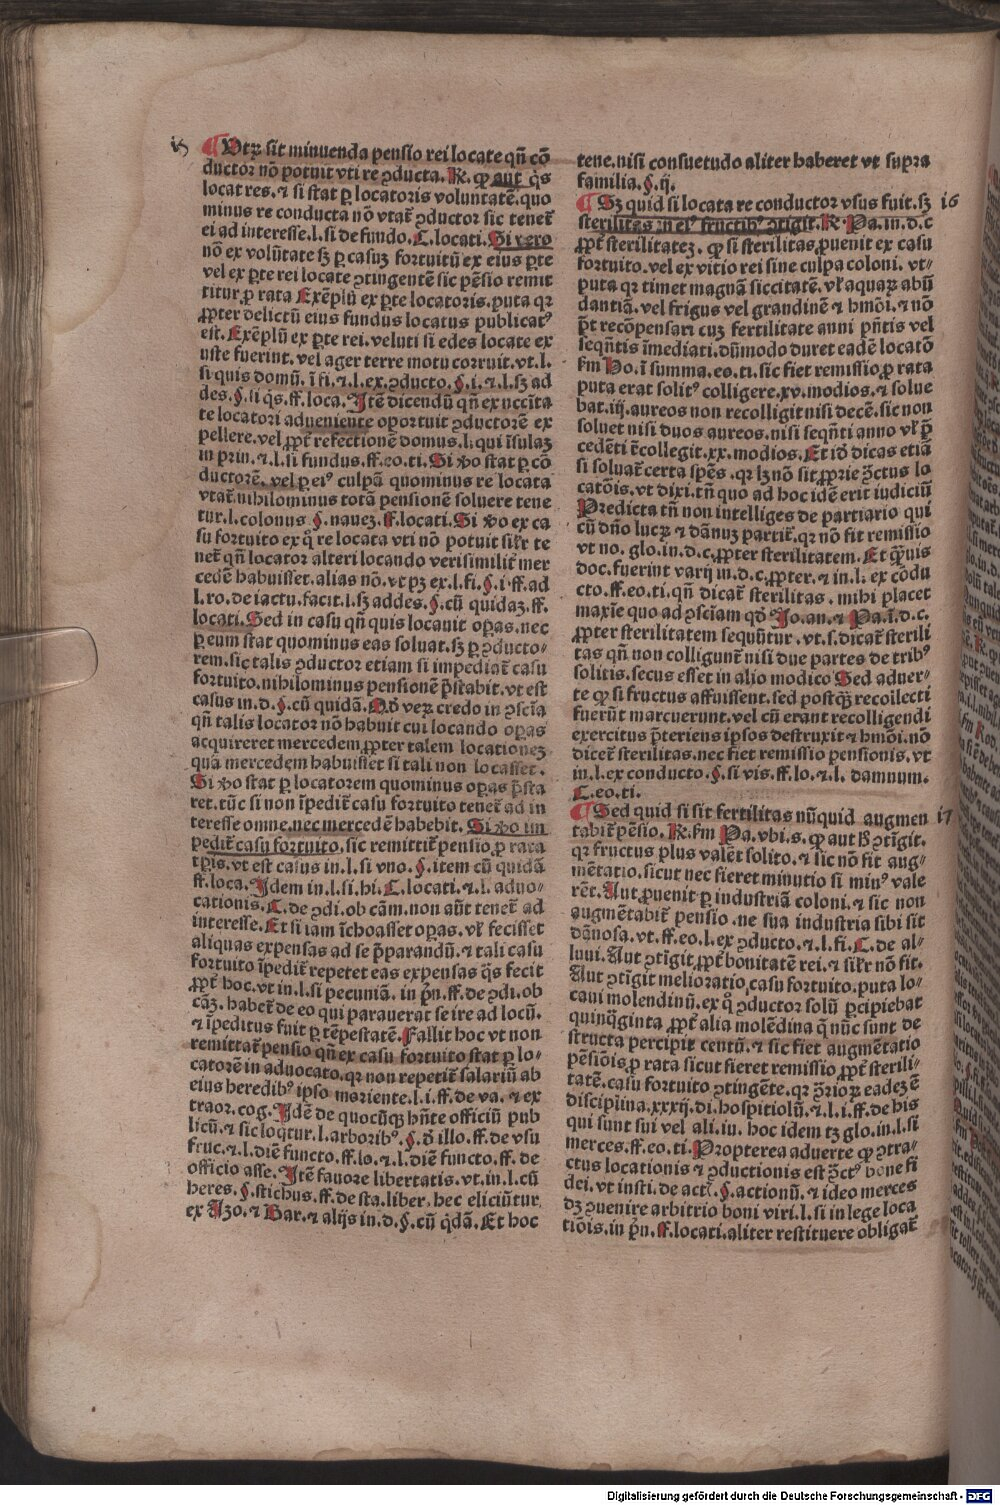 15
¶ Utꝝ sit minuenda pensio rei locate qñ cō
ductor nō potuit vti re ꝯducta. R̃. ꝙ aut q̇s
locat res. ⁊ si stat ꝑ locatoris voluntatē. quo
minus re conducta nō vtat᷑ ꝯductor sic tenet᷑
ei ad interesse. l. si de fundo. C. locati. Si vero
nō ex volūtate sꝫ ꝑ casuꝫ fortuitū ex eius ꝑte
vel ex ꝑte rei locate ꝯtingentē sic pēsio remit
titur ꝓ rata Exēplū ex ꝑte locatoris. puta qꝛ
ꝓpter delictū eius fundus locatus publicatꝰ
est. Exēplū ex ꝑte rei. veluti si edes locate ex
uste fuerint. vel ager terre motu corruit. vt. l.
si quis domū. ī fi. ⁊. l. ex. ꝯducto. §. i. ⁊. l. sꝫ ad
des. §. si q̇s. ff. loca. Itē dicendū qñ ex nccīta
te locatori adueniente oportuit ꝯductorē ex
pellere. vel ꝓpt᷑ refectionē domus. l. qui īsulaꝫ
in prin. ⁊. l. si fundus. ff. eo. ti. Si ꝟo stat ꝑ cō
ductorē. vel ꝑ eiꝰ culpā quominus re locata
vtat᷑. nihilominus totā pensionē soluere tene
tur. l. colonus §. naueꝫ. ff. locati. Si ꝟo ex ca
su fortuito ex q̄ re locata vti nō potuit sil̄r te
net᷑ qñ locator alteri locando verisimilit᷑ mer
cedē habuisset. alias nō. vt pꝫ ex. l. fi. §. i. ff. ad
l. ro. de iactu. facit. l. sꝫ addes. §. cū quidaꝫ. ff.
locati. Sed in casu qñ quis locauit oꝑas. nec
ꝑ eum stat quominus eas soluat. sꝫ ꝑ ꝯducto-
rem. sic talis ꝯductor etiam si impediat᷑ casu
fortuito. nihilominus pensionē p̄stabit. vt est
casus in. d. §. cū quidā. Qd̓ veꝝ credo in ꝯscīa
qñ talis locator nō habuit cui locando oꝑas
acquireret mercedem ꝓpter talem locationeꝫ
quā mercedem habuisset si tali non locasset.
Si ꝟo stat ꝑ locatorem quominus oꝑas p̄sta
ret. tūc si non īpedit᷑ casu fortuito tenet᷑ ad in
teresse omne. nec mercedē habebit. Si ꝟo im
pedit᷑ casu fortuito. sic remittit᷑ pensio ꝓ rata
tꝑis. vt est casus in. l. si vno. §. item cū quidā
ff. loca. Idem in. l. si hi. C. locati. ⁊. l. aduo-
cationis. C. de ꝯdi. ob cām. non aūt tenet᷑ ad
interesse. Et si iam īchoasset oꝑas. vl̓ fecisset
aliquas expensas ad se p̄parandū. ⁊ tali casu
fortuito īpedit᷑ repetet eas expensas q̄s fecit
ꝓpt᷑ hoc. vt in. l. si pecuniā. in p̄n. ff. de ꝯdi. ob
cāꝫ. habet᷑ de eo qui parauerat se ire ad locū.
⁊ īpeditus fuit ꝑ tēpestatē. Fallit hoc vt non
remittat᷑ pensio qñ ex casu fortuito stat ꝑ lo-
catorē in aduocato. qꝛ non repetit᷑ salariū ab
eius heredibꝰ ipso moriente. l. i. ff. de va. ⁊ ex
traor. cog. Idē de quocūqꝫ hñte officiū pub
licū. ⁊ sic loq̄tur. l. arboribꝰ. §. d̓ illo. ff. de vsu
fruc. ⁊. l. diē functo. ff. lo. ⁊. l. diē functo. ff. de
officio asse. Itē fauore libertatis. vt. in. l. cū
heres. §. stichus. ff. de sta. liber. hec eliciūtur
ex Azo. ⁊ Bar. ⁊ alijs in. d. §. cū q̄dā. Et hoc
tene. nisi consuetudo aliter haberet vt supra
familia. §. ij.
¶ Sꝫ quid si locata re conductor vsus fuit. sꝫ 16
sterilitas in eiꝰ fructibꝰ ꝯtigit. R̃. Pa. in. d. c
ꝓpt᷑ sterilitateꝫ. ꝙ si sterilitas ꝓuenit ex casu
fortuito. vel ex vitio rei sine culpa coloni. vt-
puta qꝛ timet magnā siccitatē. vl̓ aquaꝝ abū
dantiā. vel frigus vel grandinē ⁊ hmōi. ⁊ nō
p̄t recōpensari cuꝫ fertilitate anni p̄ntis vel
seqn̄tis īmediati. dūmodo duret eadē locatō
fm Ho. ī summa. eo. ti. sic fiet remissio ꝓ rata
puta erat solitꝰ colligere. xv. modios. ⁊ solue
bat. iij. aureos non recolligit nisi decē. sic non
soluet nisi duos aureos. nisi seqn̄ti anno vl̓ p̄
cedēti t᷑collegit. xx. modios. Et iō dicas etiā
si soluat᷑ certa spēs. qꝛ lꝫ nō sit ꝓprie ꝯctus lo
catōis. vt dixi. tñ quo ad hoc idē erit iudiciū
Predicta tñ non intelliges de partiario qui
cū dño lucꝝ ⁊ dānuꝫ partit᷑. qꝛ nō fit remissio
vt no. glo. in. d. c. ꝓpter sterilitatem. Et q̄uis
doc. fuerint varij in. d. c. ꝓpter. ⁊ in. l. ex cōdu
cto. ff. eo. ti. qñ dicat᷑ sterilitas. mihi placet
maxīe quo ad ꝯsciam qd̓ Jo. an. ⁊ Pa. ī. d. c.
ꝓpter sterilitatem sequūtur. vt. s. dicat᷑ sterili
tas qñ non colligunt᷑ nisi due partes de tribꝰ
solitis. secus esset in alio modico Sed aduer-
te ꝙ si fructus affuissent. sed postq̄ꝫ recollecti
fuerūt marcuerunt. vel cū erant recolligendi
exercitus p̄teriens ipsos destruxit ⁊ hmōi. nō
dicet᷑ sterilitas. nec fiet remissio pensionis. vt
in. l. ex conducto. §. si vis. ff. lo. ⁊. l. damnum.
C. eo. ti.
¶ Sed quid si sit fertilitas nūquid augmen 17
tabit᷑ pēsio. R̃. fm Pa. vbi. s. ꝙ aut ꝯtigit.
qꝛ fructus plus valēt solito. ⁊ sic nō fit aug-
mētatio. sicut nec fieret minutio si minꝰ vale
rēt. Aut ꝓuenit ꝑ industriā coloni. ⁊ sic non
augmētabit᷑ pensio. ne sua industria sibi sit
dānosa. vt. ff. eo. l. ex ꝯducto. ⁊. l. fi. C. de al-
luui. Aut ꝯtigit ꝓpt᷑ bonitatē rei. ⁊ sil̄r nō fit.
Aut ꝯtigit melioratio casu fortuito. puta lo-
caui molendinū. ex q̊ ꝯductor solū ꝑcipiebat
quinq̄ginta ꝓpt᷑ alia molēdina q̄ nūc sunt de
structa percipit centū. ⁊ sic fiet augmētatio
pēsiōis ꝓ rata sicut fieret remissio ꝓpt᷑ sterili-
tatē. casu fortuito ꝯtingēte. qꝛ ꝯrioꝝ eadeꝫ ē
disciplina. xxxij. di. hospitiolū. ⁊. l. i. ff. de his
qui sunt sui vel ali. iu. hoc idem tꝫ glo. in. l. si
merces. ff. eo. ti. Propterea aduerte ꝙ ꝯtra-
ctus locationis ⁊ ꝯductionis est ꝯctꝰ bone fi
dei. vt insti. de act. §. actionū. ⁊ ideo merces
dꝫ ꝯuenire arbitrio boni viri. l. si in lege loca
tiōis. in p̄n. ff. locati. aliter restituere obligat᷑